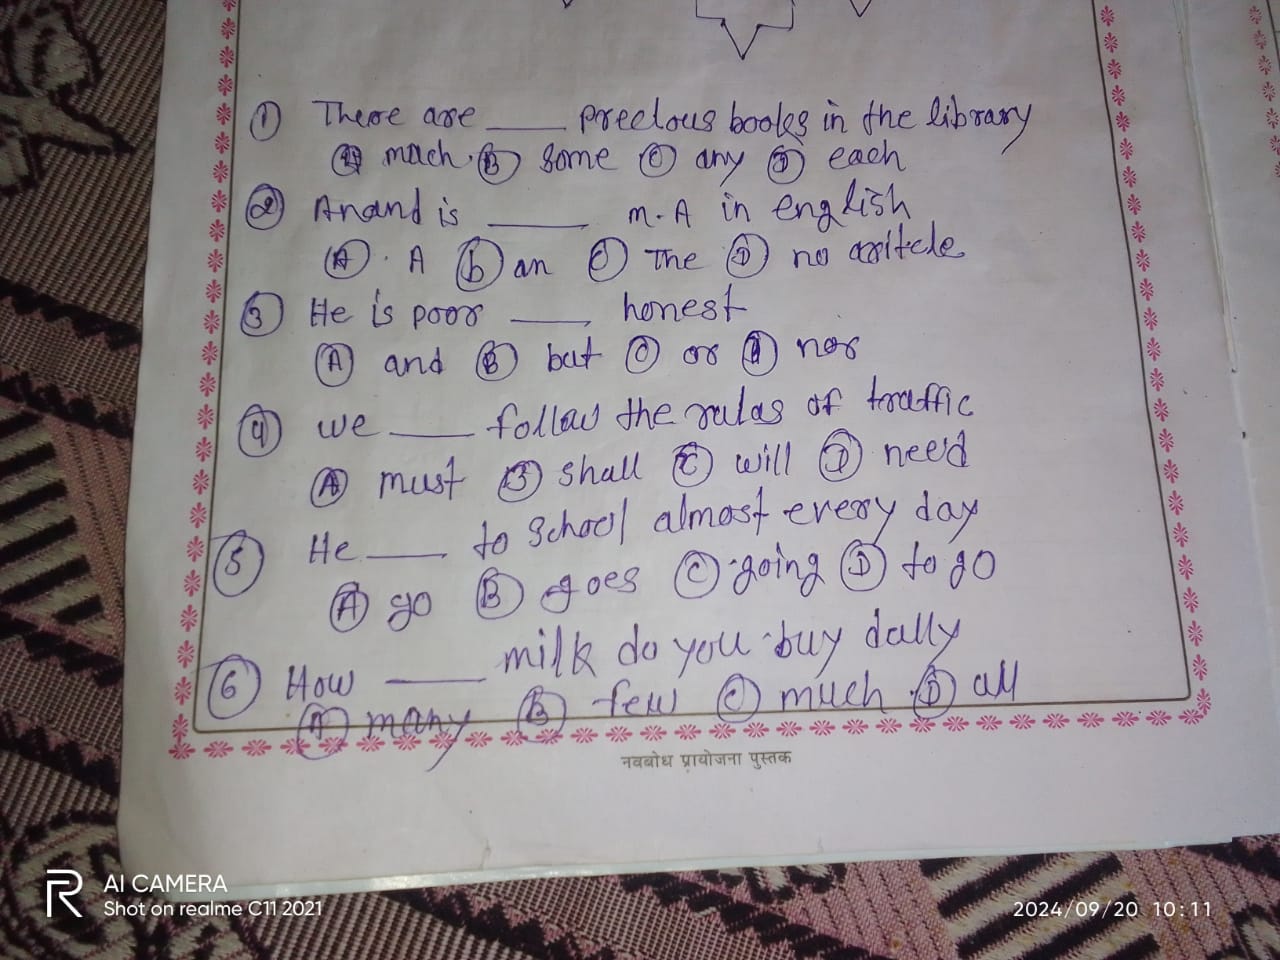 ① There are ____ precious books in the library
Ⓐ much Ⓑ some Ⓒ any Ⓓ each
② Anand is ____ M.A in english
Ⓐ. A Ⓑ an Ⓒ The Ⓓ no aritcle
③ He is poor ____ honest
Ⓐ and Ⓑ but Ⓒ or Ⓓ nor
④ we ____ follow the rules of traffic
Ⓐ must Ⓑ shall Ⓒ will Ⓓ need
⑤ He ____ to school almost every day
Ⓐ go Ⓑ goes Ⓒ going Ⓓ to go
⑥ How ____ milk do you buy daily
Ⓐ many Ⓑ few Ⓒ much Ⓓ all
नवबोध प्रायोजना पुस्तक
R AI CAMERA
Shot on realme C11 2021
2024/09/20 10:11